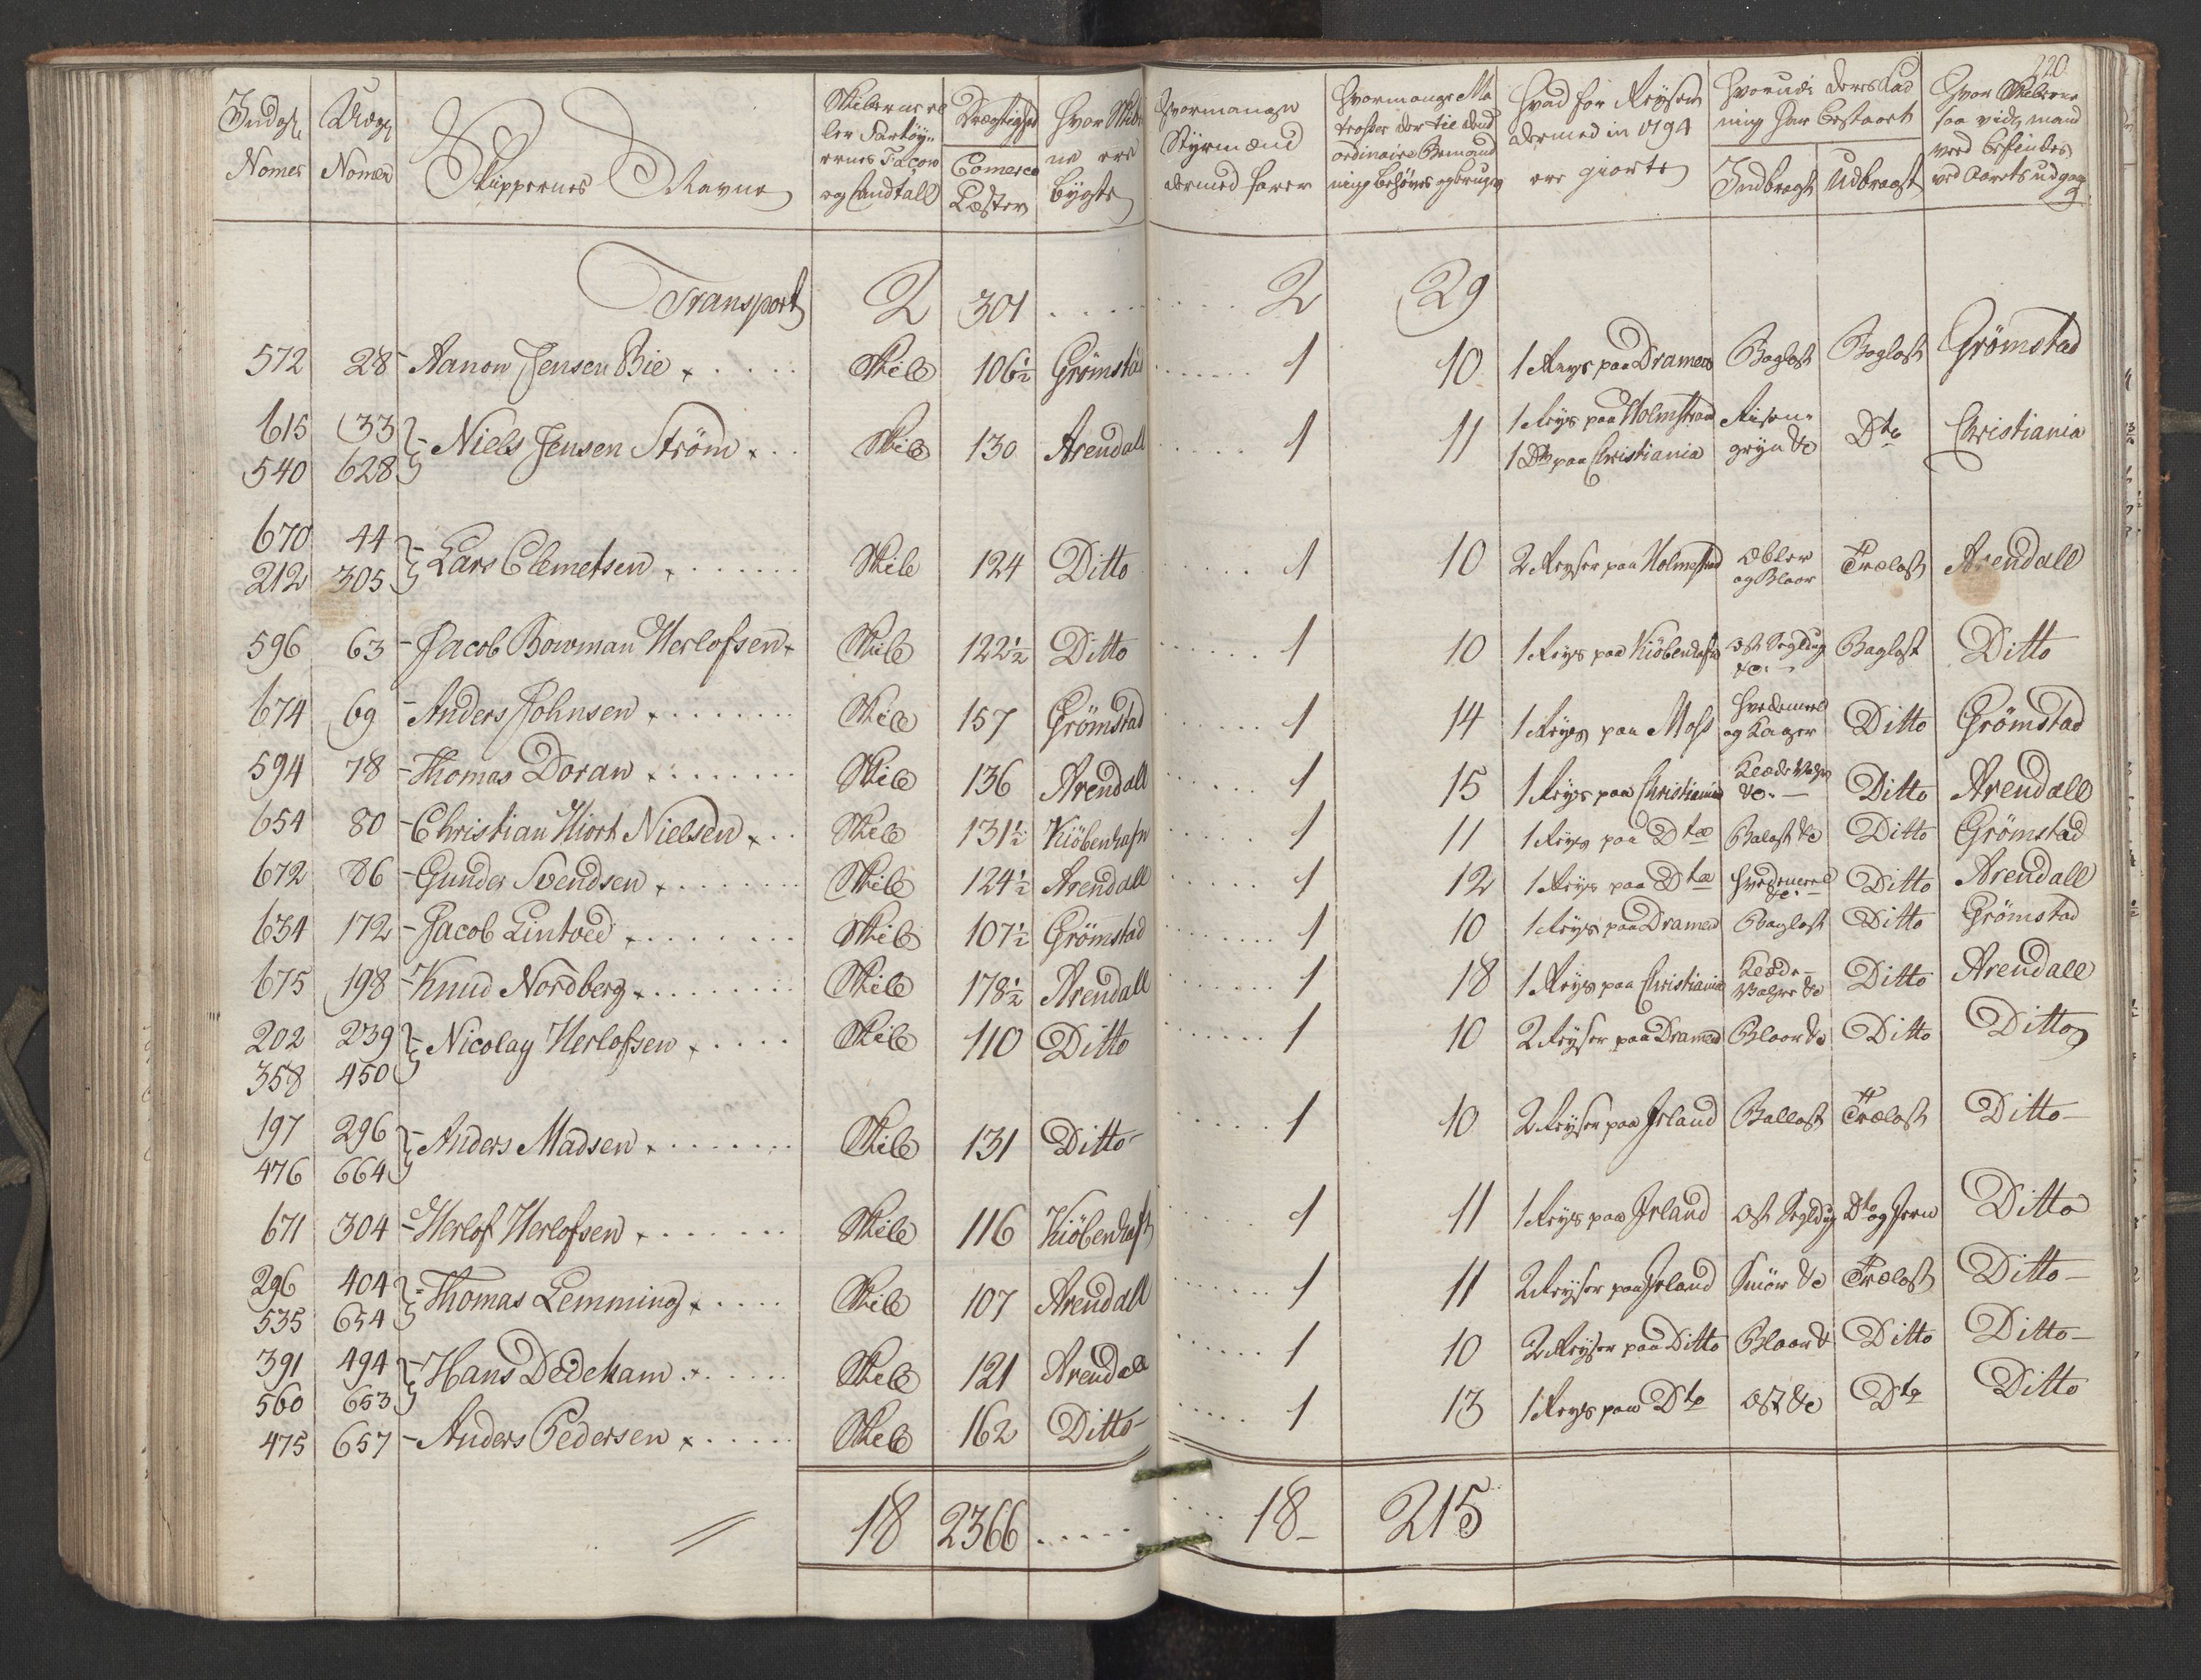 220
Indg. Nomer | Udg. Nomer | Skippernes Navne | Skibernes eller Fartöyernes Façon og Andtall | Drægtighed Comerce Læster | Hvor Skibene ere bygte | Hvormange Styrmænd dermed farer | Hvormange Matroser der til dend ordinaire Bemanding behøves og bruges | Hvad for Reyser dermed in 1794 ere giorte | Hvorudi deres Ladning har bestaaet Indbragt | Udbragt | Hvor Skibene saa vidt mand veed befindes ved Aarets udgang
Transport 2 301 2 29
572 28 - Aanon Jensen Bie Skib 106½ Grömstad 1 10 1 Reys paa Dramen Baglast Baglast Grömstad
615 33
540 628 - Niels Jensen Ström Skib 130 Arendall 1 11 1 Reys paa Holmstrand 1 Dto paa Christiania gryn &c Dto Christiania
670 44
212 305 - Lars Clemetsen Skib 124 Ditto 1 10 2 Reyser paa Holmestrand og Blaar Trælast Arendall
596 63 - Jacob Bowman Herlofsen Skib 122½ Ditto 1 10 1 Reys paa Kiöbenhafn Ost Segldug &c. Baglast Ditto
674 69 - Anders Johnsen Skib 157 Grömstad 1 14 1 Reys paa Moss Hvedemeel og Kager Ditto Grömstad
594 78 - Thomas Doran Skib 136 Arendall 1 15 1 Reys paa Christiania Klæde &c. Ditto Arendall
654 80 - Christian Hiort Nielsen Skib 131½ Kiöbenhafn 1 11 1 Reys paa Dto Balast &c Ditto Grömstad
672 86 - Gunder Svendsen Skib 124½ Arendall 1 12 1 Reys paa Dto Hvedemeel &c. Ditto Arendall
634 172 - Jacob Lintved Skib 107½ Grömstad 1 10 1 Reys paa Dramen Baglast Ditto Grömstad
675 198 - Knud Nordberg Skib 178½ Arendall 1 18 1 Reys paa Christiania Klæde &c Ditto Arendall
202 239
358 450 - Nicolay Herlofsen Skib 110 Ditto 1 10 2 Reyser paa Dramen Blaar &c Ditto Ditto
197 296
476 664 - Anders Madsen Skib 131 Ditto 1 10 2 Reyser paa Irland Ballast Trælast Ditto
671 304 - Herlof Herlofsen Skib 116 Kiöbenhafn 1 11 1 Reys paa Irland Ost Segldug Dto og Jern Ditto
296 404
535 654 - Thomas Lemming Skib 107 Arendall 1 11 2 Reyser paa Irland Smör &c Trælast Ditto
391 494
560 653 - Hans Dedekam Skib 121 Arendall 1 10 2 Reyser paa Ditto Blaar & Ditto Ditto
475 657 - Anders Pedersen Skib 162 Ditto 1 13 1 Reys paa Dto Ost &c Dto Ditto
18 2366 18 215